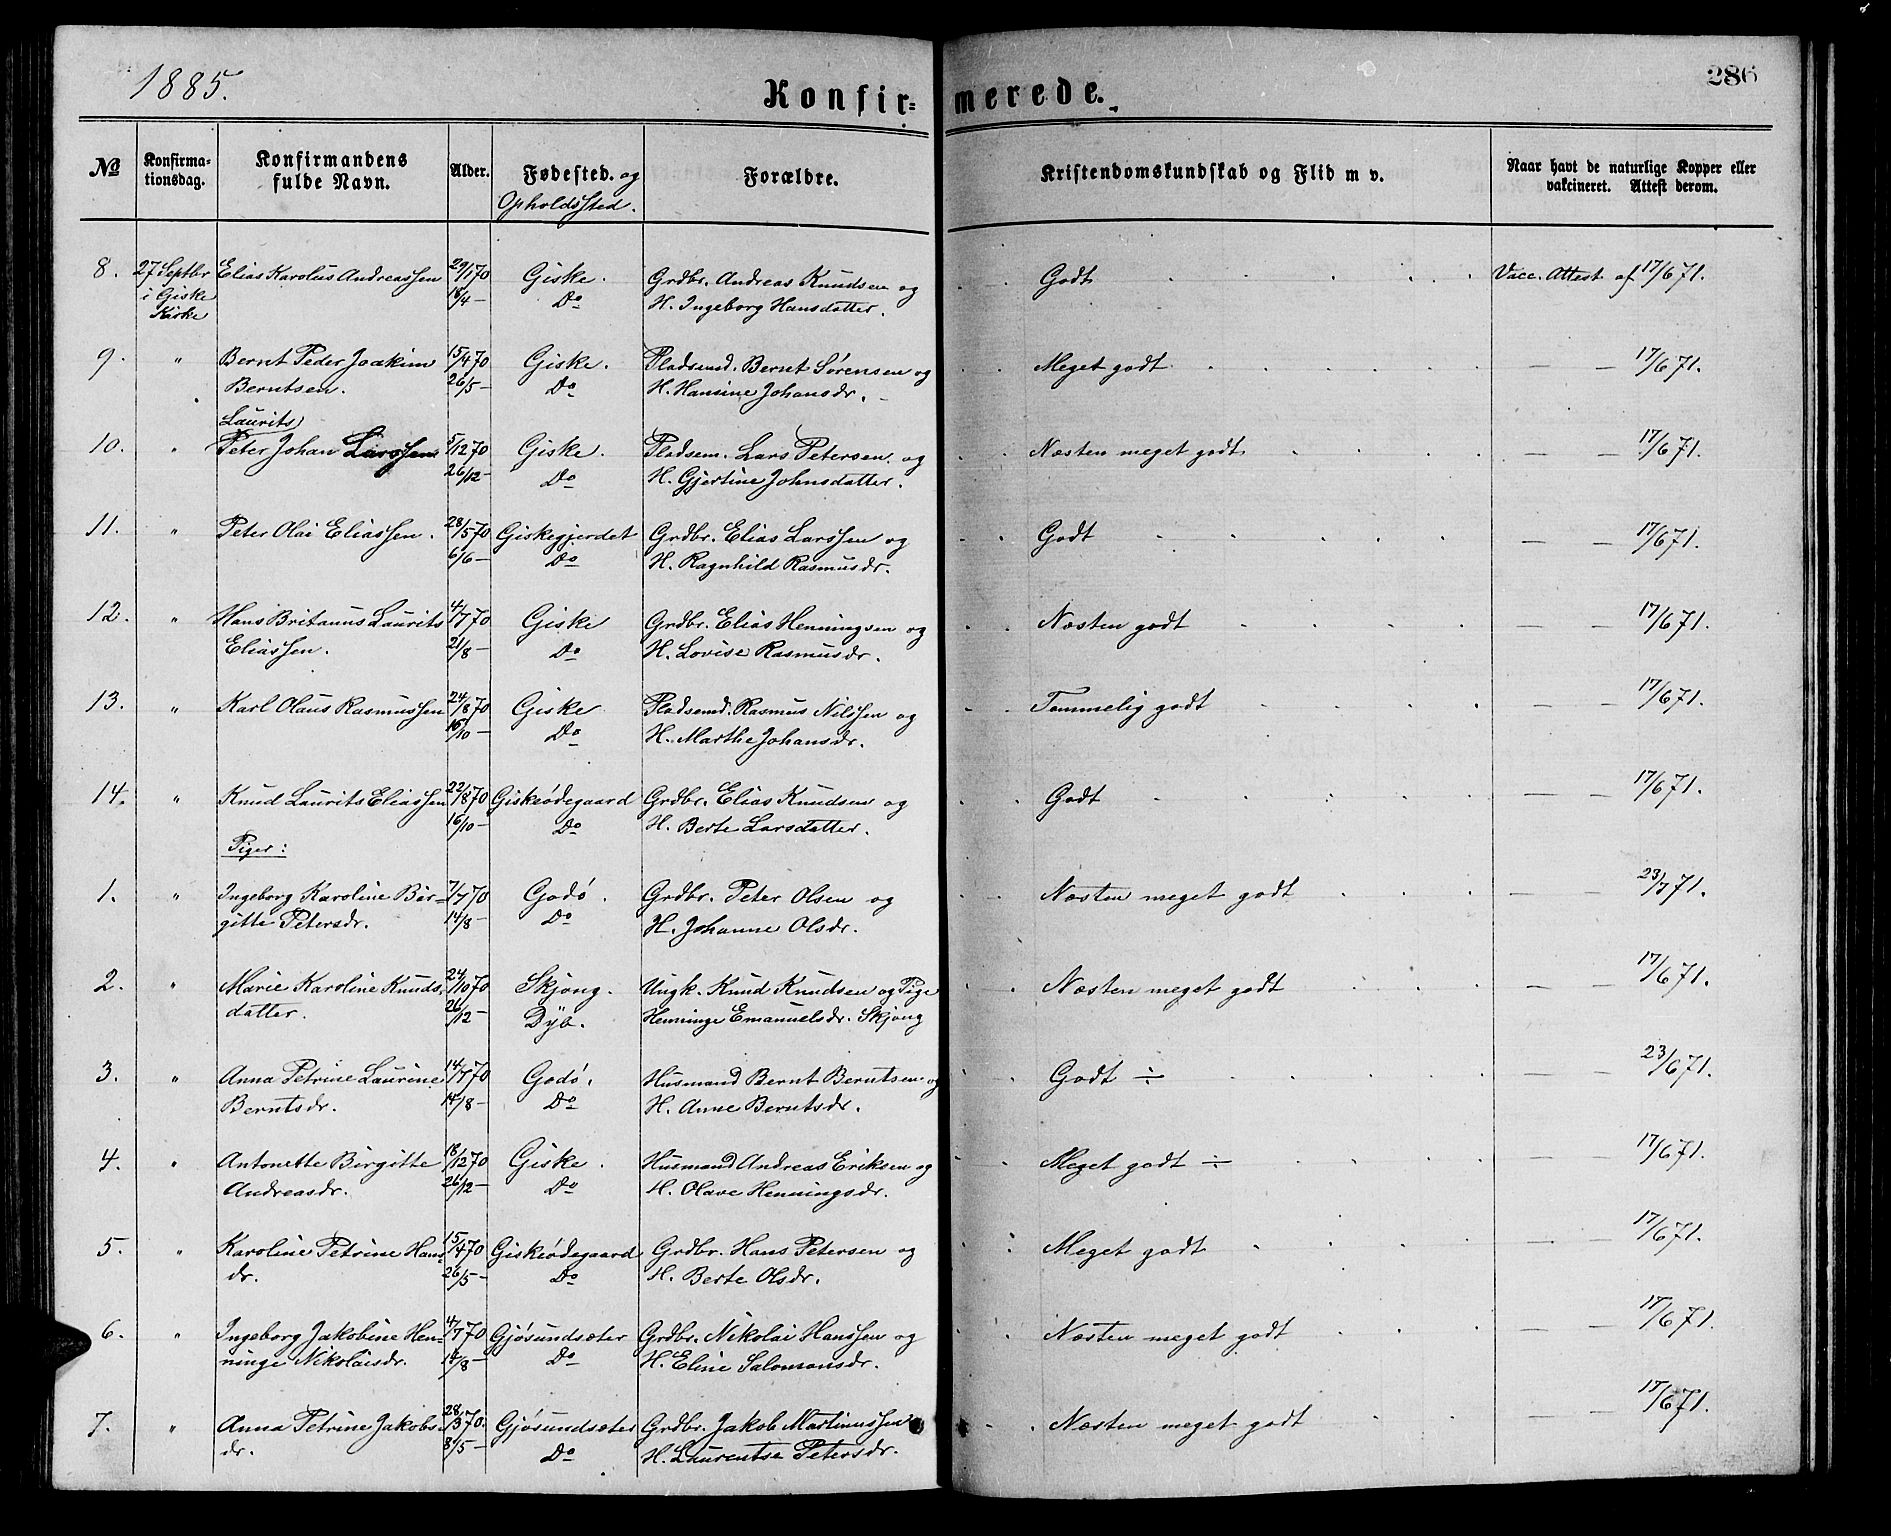 1885.
Konfir= merede.
286
No
Konfirma-
tionsdag.
Konfirmandens
fulde Navn.
Alder.
Fødested. og
Opholdssted.
Forældre.
Kristendomskundskab og Flid m v.
Naar havt de naturlige Kopper eller
vakcineret. Attest derom.
8. 27 Septbr Elias Karolus Andreassen 29/1 70 Giske. Grdbr. Andreas Knudsen og Godt Vacc. Attest af 17/6 71.
i Giske 18/4 — Do H. Ingeborg Hansdatter.
Kirke
9. " Bernt Peder Joakim 15/4 70 Giske. Pladsmd. Bernt Sørensen og Meget godt — — 17/6 71.
Berntsen. 26/5 — Do H. Hansine Johansdr.
Laurits
10. " Peter Johan Larssen 5/12 70 Giske. Pladsem. Lars Petersen og Næsten meget godt — — 17/6 71.
26/12 — Do H. Gjertine Johnsdatter.
11. " Peter Olai Eliassen. 28/5 70 Giskegjerdet Grdbr. Elias Larssen og Godt — — 17/6 71.
6/6 — Do H. Ragnhild Rasmusdr.
12. " Hans Britanus Laurits 4/7 70 Giske Grdbr. Elias Henningsen og Næsten godt — — 17/6 71.
Eliassen. 21/8 — Do H. Lovise Rasmusdr.
13. " Karl Olaus Rasmussen 24/8 70 Giske Pladsemd. Rasmus Nilssen og Temmelig godt — — 17/6 71.
16/10 — Do H. Marthe Johansdr.
14. " Knud Laurits Eliassen 22/8 70 Giskeødegaard Grdbr. Elias Knudsen og Godt — — 17/6 71.
16/10 — Do H. Berte Larsdatter.
Piger:
1. " Ingeborg Karoline Bir- 7/7 70 Godø. Grdbr. Peter Olsen og Næsten meget godt — — 23/7 71.
gitte Petersdr. 14/8 — Do H. Johanne Olsdr.
2. " Marie Karoline Knuds- 24/10 70 Skjong. Ungk. Knud Knudsen og Pige Næsten meget godt — — 17/6 71.
datter. 26/12 — Dyb. Henninge Emanuelsdr. Skjong
3. " Anna Petrine Laurine 14/7 70 Godø. Husmand Bernt Berntsen og Godt ÷ — — 23/6 71.
Berntsdr. 14/8 — Do H. Anne Berntsdr.
4. " Antonette Birgitte 18/12 70 Giske. Husmand Andreas Eriksen og Meget godt ÷ — — 17/6 71.
Andreasdr. 26/12 — Do H. Olave Henningsdr.
5. " Karoline Petrine Hans- 15/4 70 Giskeødegaard Grdbr. Hans Petersen og Meget godt — — 17/6 71.
dr. 26/5 — Do H. Berte Olsdr.
6. " Ingeborg Jakobine Hen- 4/7 70 Gjøsundsæter Grdbr. Nikolai Hanssen og Næsten meget godt — — 17/6 71.
ninge Nikolaisdr. 14/8 — Do H. Eline Salomonsdr.
7. " Anna Petrine Jakobs- 28/3 70. Gjøsundsæter Grdbr. Jakob Martinussen Næsten meget godt — — 17/6 71.
dr. 8/5 — Do H. Laurentse Petersdr.